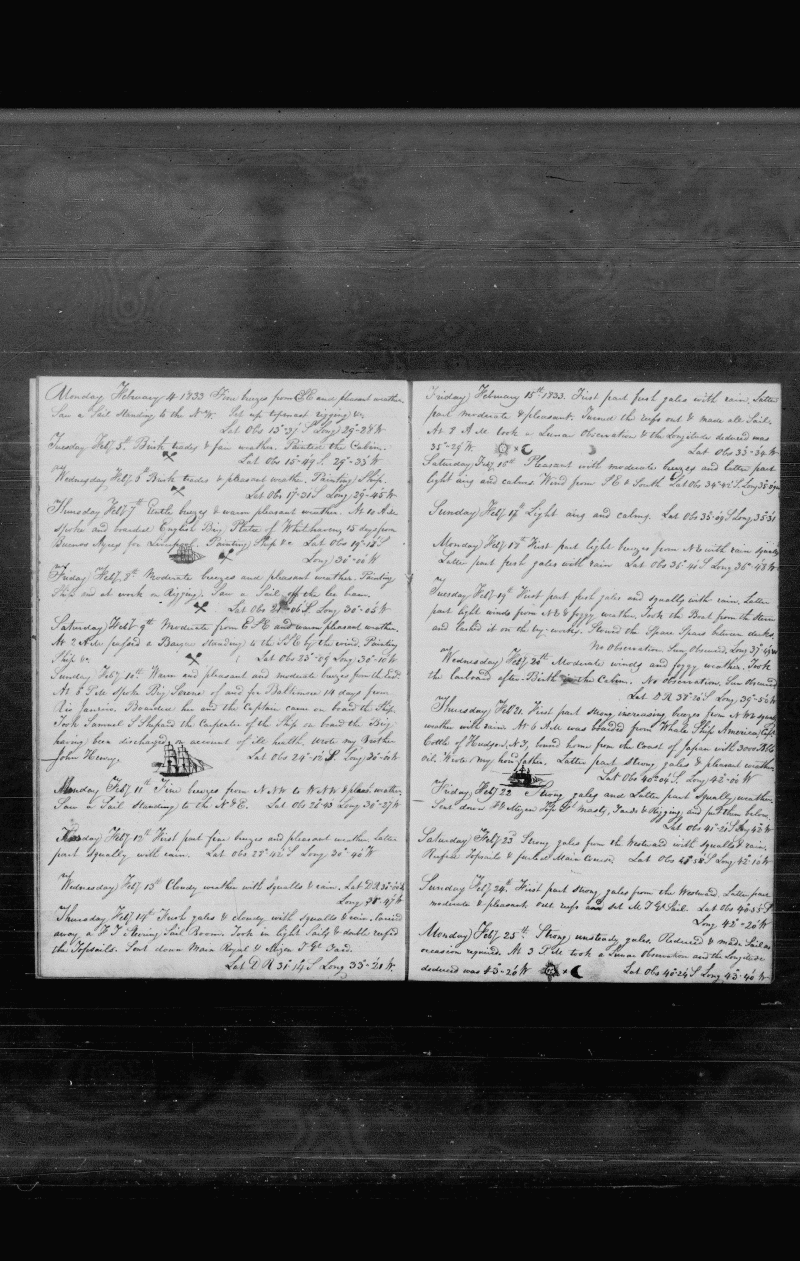 Monday February 4 1833 Fine breezes from SE and pleasant weather.
Saw a Sail standing to the N.W. Set up topmast rigging &c.
Lat Obs 13°-31 S Long 29°-28 W
Tuesday Feby 5th Brisk trades & fair weather. Painted the Cabin.
Lat Obs 15-49 S. 29-33 W
Wednesday Feby 6th Brisk trades & pleasant weather. Painting Ship.
Lat Obs 17-31 S Long 29-45 W
Thursday Feby 7th breeze & warm pleasant weather. At 10 AM
spoke and boarded English Brig of Whithaven, 15 days from
Buenos Ayres for Liverpool. Painting Ship &c Lat Obs 19-13 S
Long 30-00 W
Friday Feby 8th Moderate breezes and pleasant weather. Painting
Ship and at work on Rigging. Saw a Sail off the lee beam.
Lat Obs 21-06 S Long 30-05 W
Saturday Feby 9th Moderate from ESE and warm pleasant weather.
At 2 AM passed a Barque standing to the SSE by the wind. Painting
Ship &c. Lat Obs 23-09 Long 30-10 W
Sunday Feby 10th Warm and pleasant and moderate breezes from the Estd
At 6 PM Spoke Brig of and for Baltimore 14 days from
Rio Janeiro. Boarded her and the Captain came on board the Ship.
Took Samuel S Shepard the Carpenter of the Ship on board the Brig
having been discharged on account of ill health. Wrote my Brother
John Henry. Lat Obs 24-12 S. Long 30-00 W
Monday Feby 11th Fine breezes from NNW to WNW & pleast. weather
Saw a Sail standing to the N&E. Lat Obs 26-43 Long 30-27 W
Tuesday Feby 12th First part fine breezes and pleasant weather Latter
part squally with rain. Lat Obs 28-42 S Long 30-40 W
Wednesday Feby 13th Cloudy weather with squalls & rain. Lat D.R 30-
Long -47 W
Thursday Feby 14th Fresh gales & cloudy with squalls & rain. Carried
away a F T Steering Sail Boom. Took in light Sails & double reefed
the Topsails. Sent down Main Royal & Mizen T Gt Yard.
Lat D R 31-14 S Long 33-21 W
Friday February 15th 1833. First part fresh gales with rain. Latter
part moderate & pleasant. Turned the reefs out & made all Sail.
At 8 AM took a Lunar Observation & the Longitude deduced was
35-29 W. Lat Obs 33-34 W
Saturday Feby 16th Pleasant with moderate breezes and latter part
light airs and calms Wind from SE & South Lat Obs 34-42 S. Long 35-
Sunday Feby 17th Light airs and calms. Lat Obs 35-09 S Long 35-31
Monday Feby 18th First part light breezes from NE with rain squally
Latter part fresh gales with rain Lat Obs 36-40 S Long 36-48 W
Tuesday Feby 19th First part fresh gales and squally with rain. Latter
part light winds from NE & foggy weather. Took the Boat from the Stern
and lashed it on the Stowed the Spare Spars between decks.
No Observation. Sun Obscured. Long 37-45 W
Wednesday Feby 20th Moderate winds and foggy weather. Took
the Larboard after Birth in the Cabin. No Observation. Sun Obscured
Lat. D.R 38-20 S Long 39-56 W
Thursday Feby 21. First part strong increasing breezes from NWd squally
weather with rain. At 6 AM was boarded from Whale Ship America, Capt
Cottle of Hudson, N.Y, bound home from the Coast of Japan with 3000 Bbls
oil. Wrote my hon. father. Latter part strong gales & pleasant weather
Lat Obs 40-04 S. Long 42-00 W
Friday Feby 22 Strong gales and Latter part Squally weather
Sent down F & Mizen Top Gt masts, Yards & Rigging, and put them below.
Lat Obs 41-21 S Long 42 W
Saturday Feby 23d Strong gales from the Westward with squalls & rain.
Reefed Topsails & furled Main Course Lat Obs S Long 42-10 W
Sunday Feby 24th. First part strong gales from the Westward. Latter part
moderate & pleasant, out reefs and set M. T Gt Sail. Lat Obs 40-55 S
Long 42-20 W
Monday Feby 25th. Strong unsteady gales. Reduced & made Sail as
occasion required. At 3 PM took a Lunar Observation and the Longitude
deduced was 43-26 W Lat Obs 40-24 S Long 43-40 W